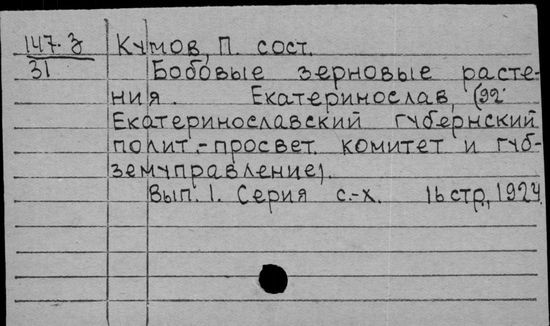 147.З Кумов, П. сост.
31 Бобовые зерновые расте-
ния. Екатеринослав, (92
Екатеринославский губернский
полит.-просвет. комитет и губ-
земуправление).
Вып. 1. Серия с.-х. 16 стр., 1924